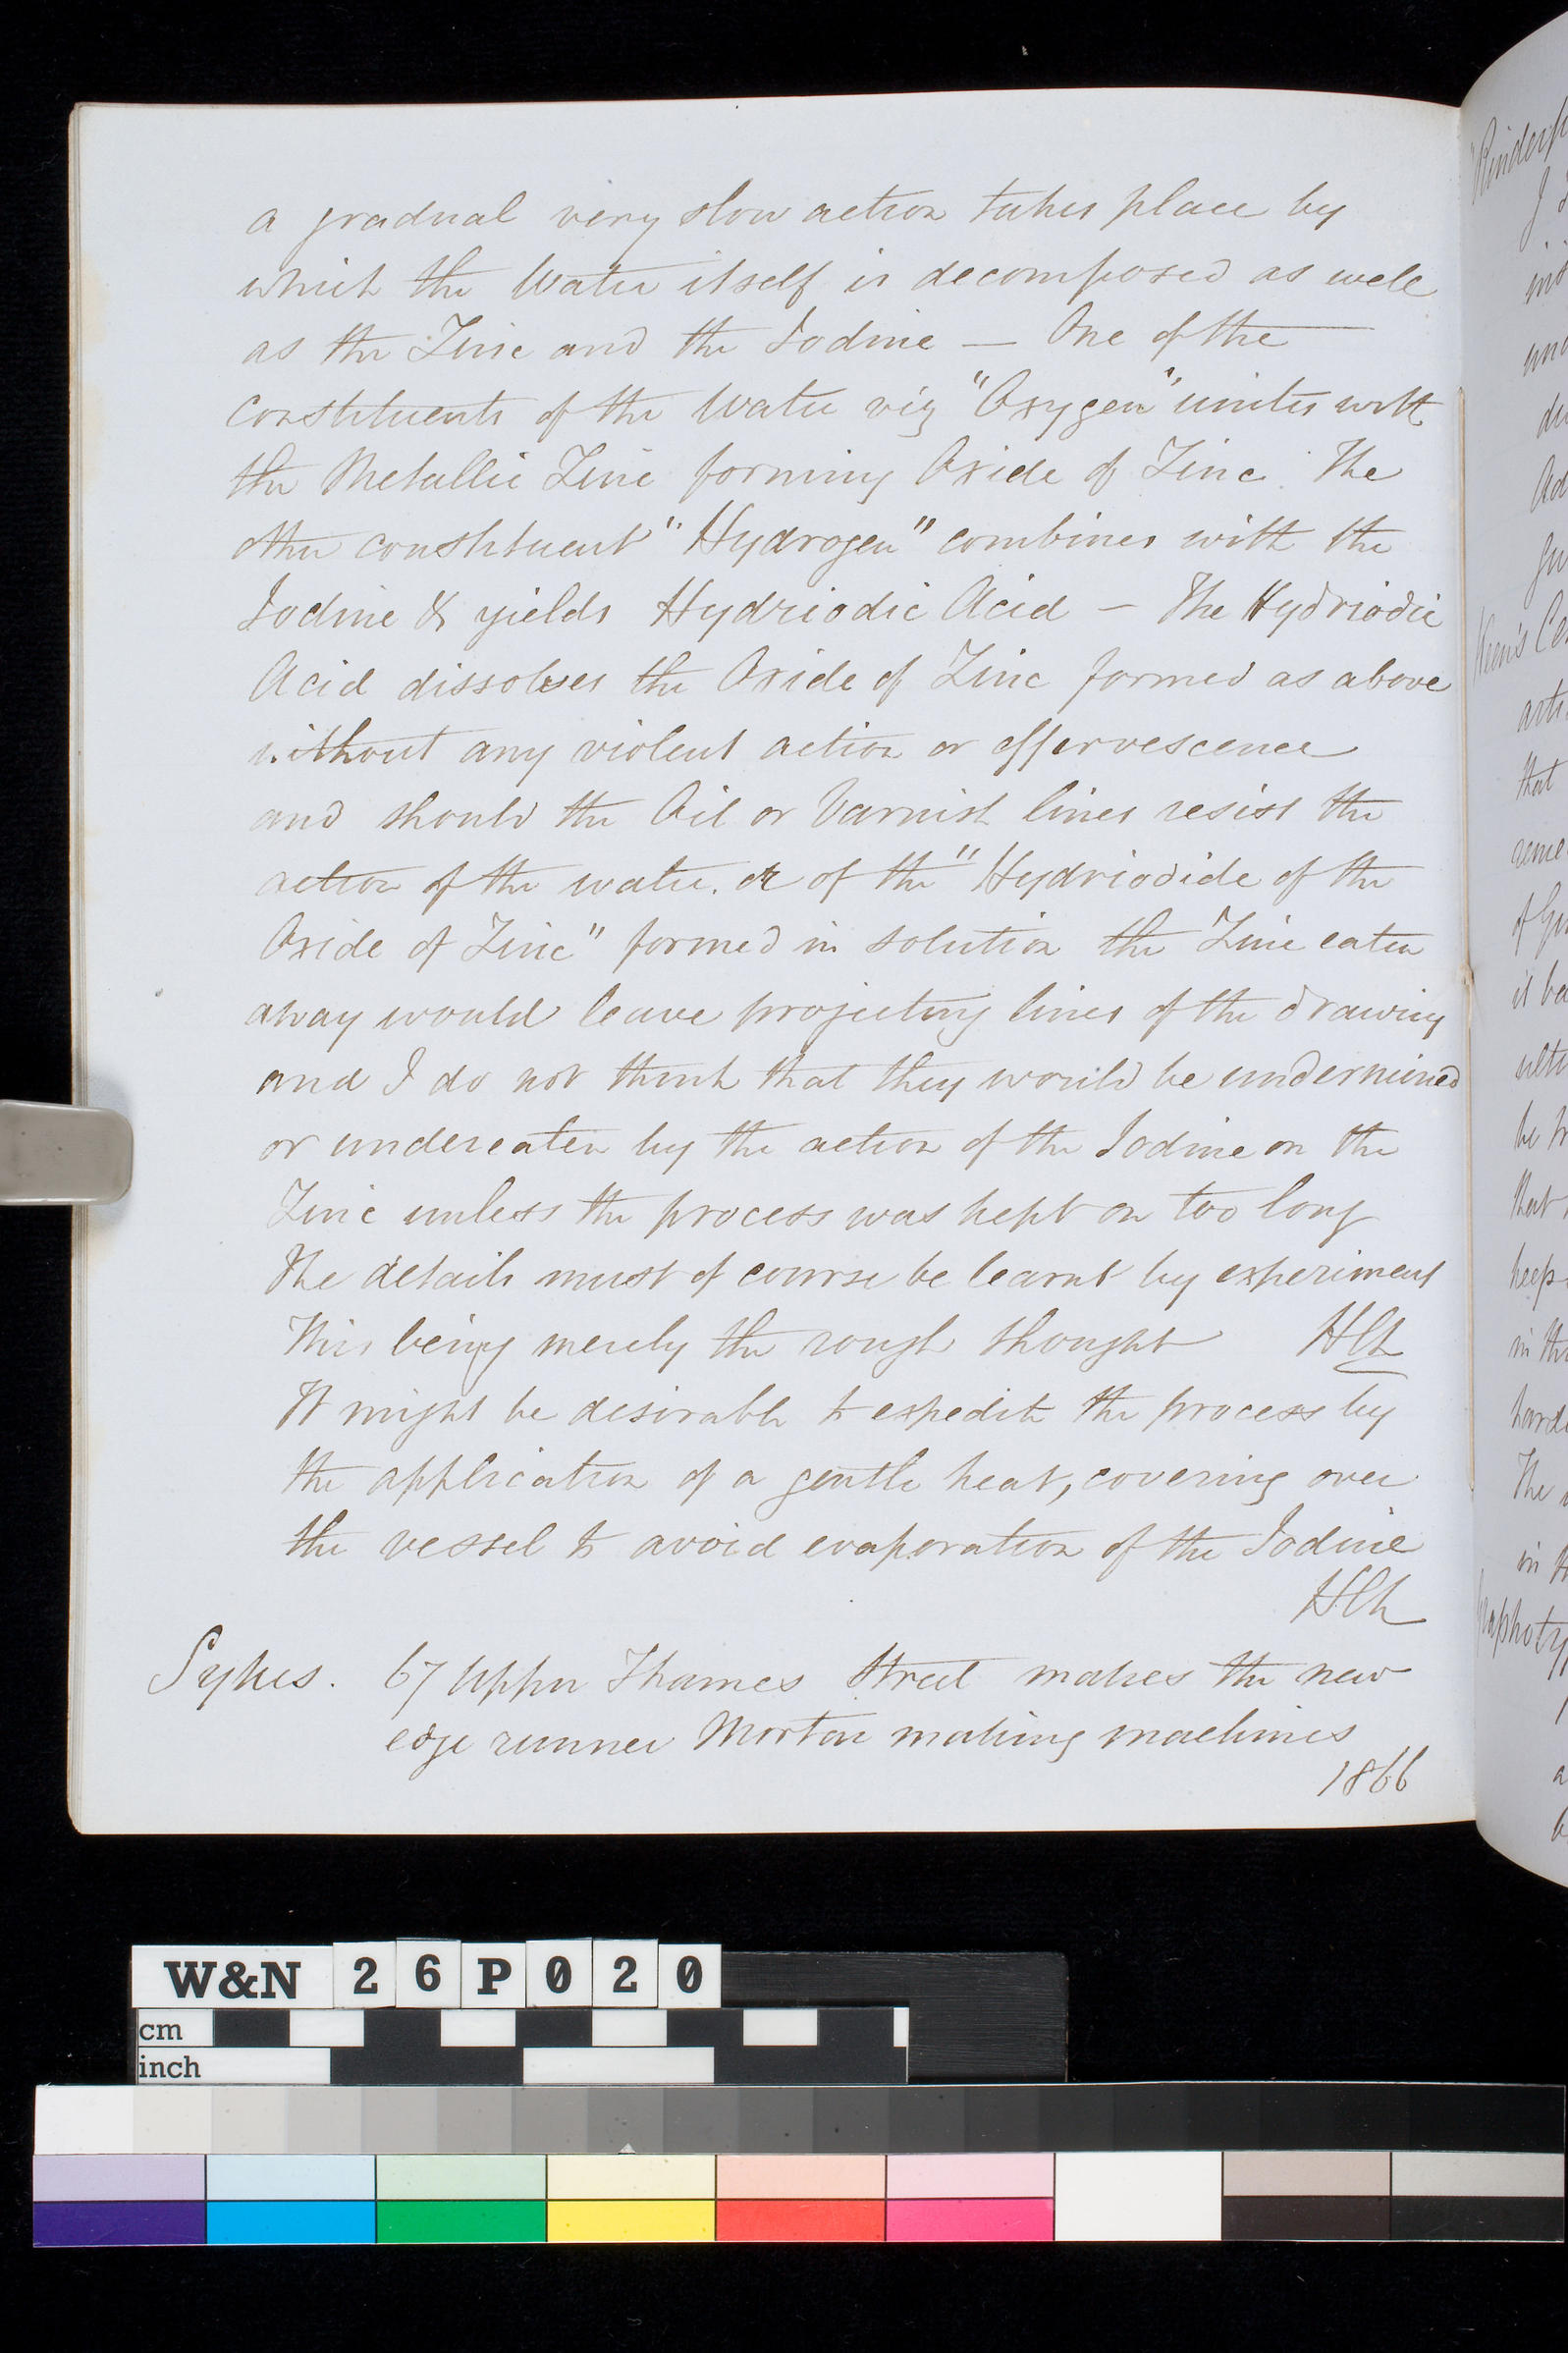 a gradual very slow action takes place by
which the Water itself is decomposed as well
as the Zinc and the Iodine — One of the
constituents of the Water viz "Oxygen" unites with
the Metallic Zinc forming Oxide of Zinc. The
other constituent "Hydrogen" combines with the
Iodine & yields Hydriodic Acid — The Hydriodic
Acid dissolves the Oxide of Zinc formed as above
without any violent action or effervescence
and should the Oil or Varnish lines resist the
action of the water. or of the "Hydriodide of the
Oxide of Zinc" formed in solution the Zinc eaten
away would leave projecting lines of the drawing
and I do not think that they would be undermined
or undereaten by the action of the Iodine on the
Zinc unless the process was kept on too long
The details must of course be learnt by experiment
This being merely the rough thought HCh
It might be desirable to expedite the process by
the application of a gentle heat, covering over
the vessel to avoid evaporation of the Iodine
HCh
Sykes. 67 Upper Thames Street makes the new
edge runner Mortar making machines
1866
W&N 26P020
cm
inch